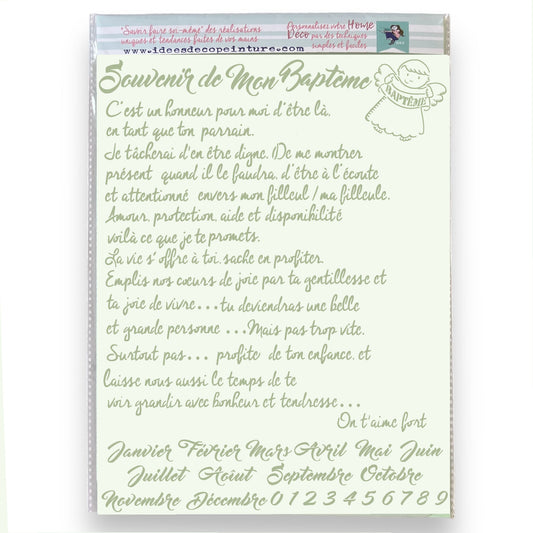 "Savoir faire soi-même" des réalisations
uniques et tendances faites de vos mains
www.ideesdecopeinture.com
Personnalisez votre Home
Déco par des techniques
simples et faciles
Souvenir de Mon Baptême
BAPTÊME
C'est un honneur pour moi d'être là,
en tant que ton parrain.
Je tâcherai d'en être digne. De me montrer
présent quand il le faudra, d'être à l'écoute
et attentionné envers mon filleul / ma filleule.
Amour, protection, aide et disponibilité
voilà ce que je te promets.
La vie s'offre à toi, sache en profiter.
Emplis nos cœurs de joie par ta gentillesse et
ta joie de vivre...tu deviendras une belle
et grande personne ...Mais pas trop vite.
Surtout pas... profite de ton enfance, et
laisse nous aussi le temps de te
voir grandir avec bonheur et tendresse...
On t'aime fort
Janvier Février Mars Avril Mai Juin
Juillet Août Septembre Octobre
Novembre Décembre 0 1 2 3 4 5 6 7 8 9